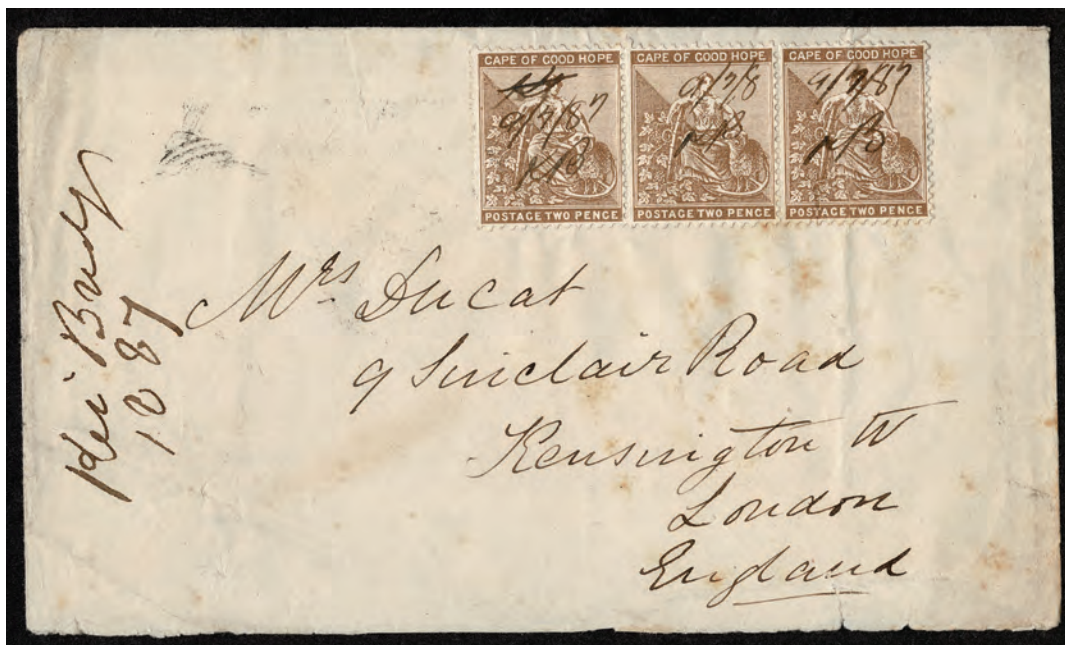 CAPE OF GOOD HOPE
9/7/87
KB
POSTAGE TWO PENCE
CAPE OF GOOD HOPE
9/7/8
KB
POSTAGE TWO PENCE
CAPE OF GOOD HOPE
9/7/87
KB
POSTAGE TWO PENCE
Kei Bridge
1887
Mrs Ducat
9 Sinclair Road
Kensington W
London
England